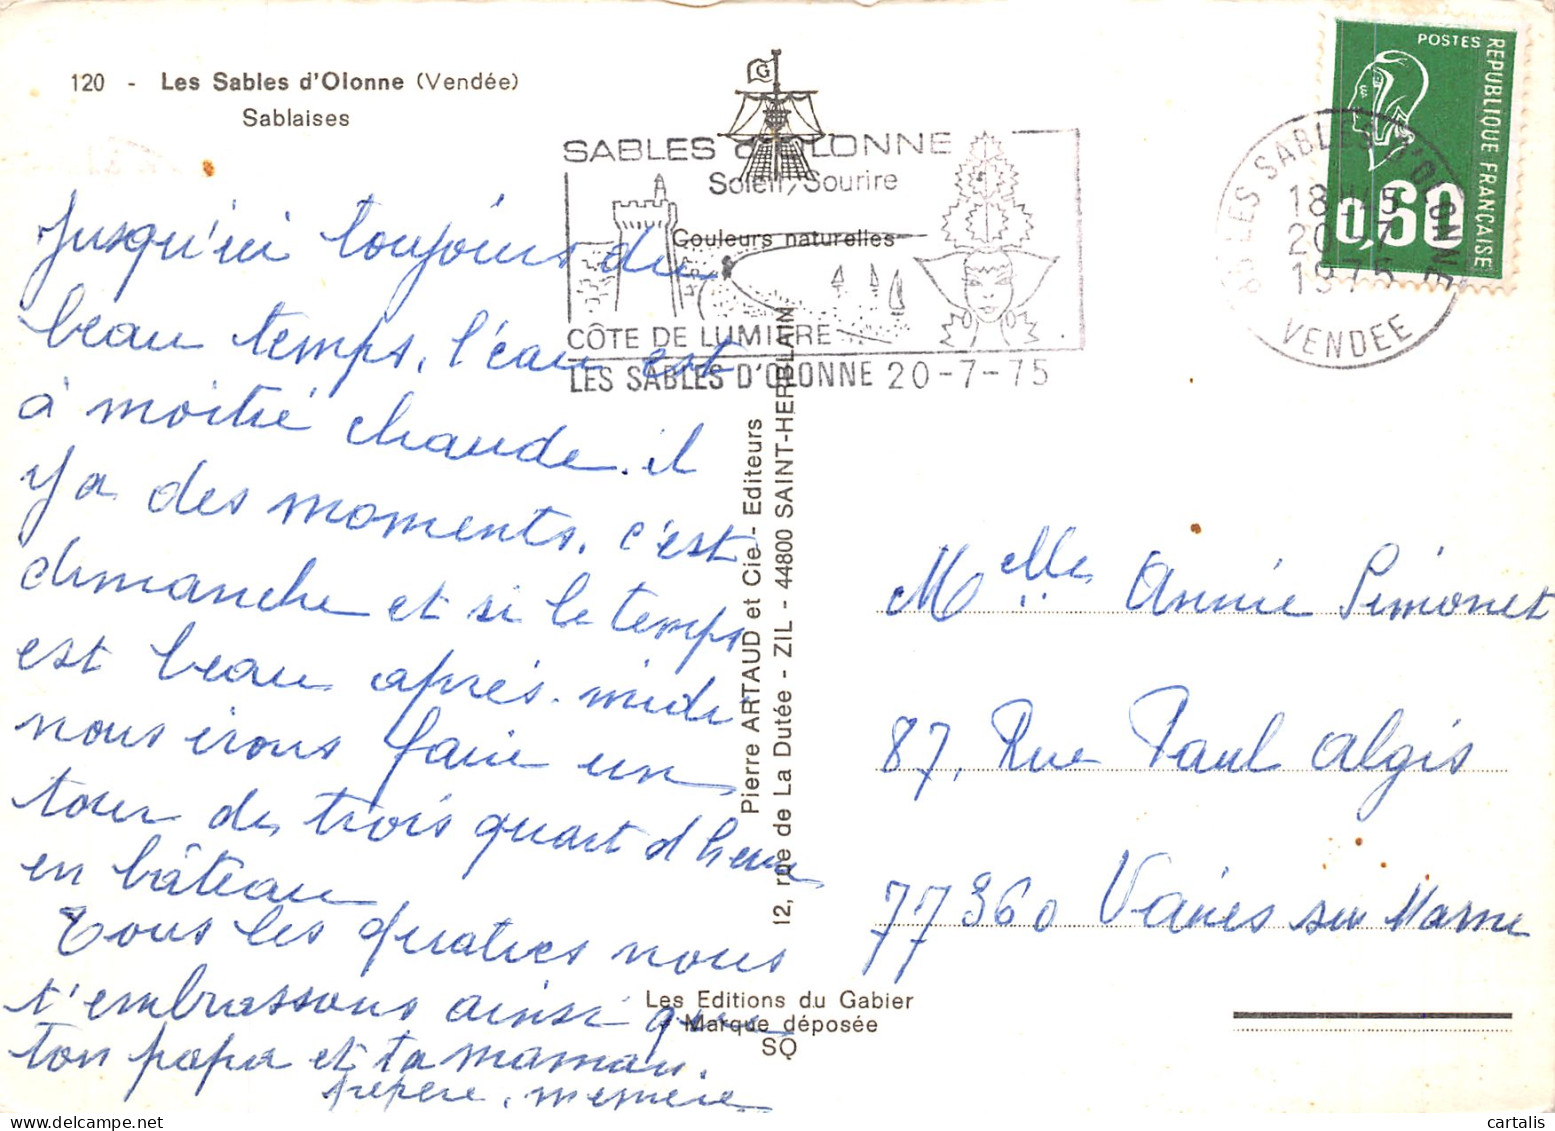 120 - Les Sables d'Olonne (Vendée)
Sablaises
jusqu'ici toujours du
beau temps, l'eau est
à moitié chaude. il
y a des moments, c'est
dimanche et si le temps
est beau après-midi
nous irons faire un
tour de trois quart d heure
en bâteau
Tous les quatres nous
t'embrassons ainsi que
ton papa et ta maman.
pépère, mémère
G
SABLES d'OLONNE
Soleil, Sourire
Couleurs naturelles
CÔTE DE LUMIERE
LES SABLES D'OLONNE 20-7-75
Pierre ARTAUD et Cie - Editeurs
12, rue de La Dutée - ZIL - 44800 SAINT-HERBLAIN
Les Editions du Gabier
Marque déposée
SQ
POSTES
REPUBLIQUE FRANÇAISE
0,60
85 LES SABLES D'OLONNE
18H45
20-7
1975
VENDEE
Melle Annie Simonet
87, Rue Paul Algis
77360 Vaires sur Marne
cartalis